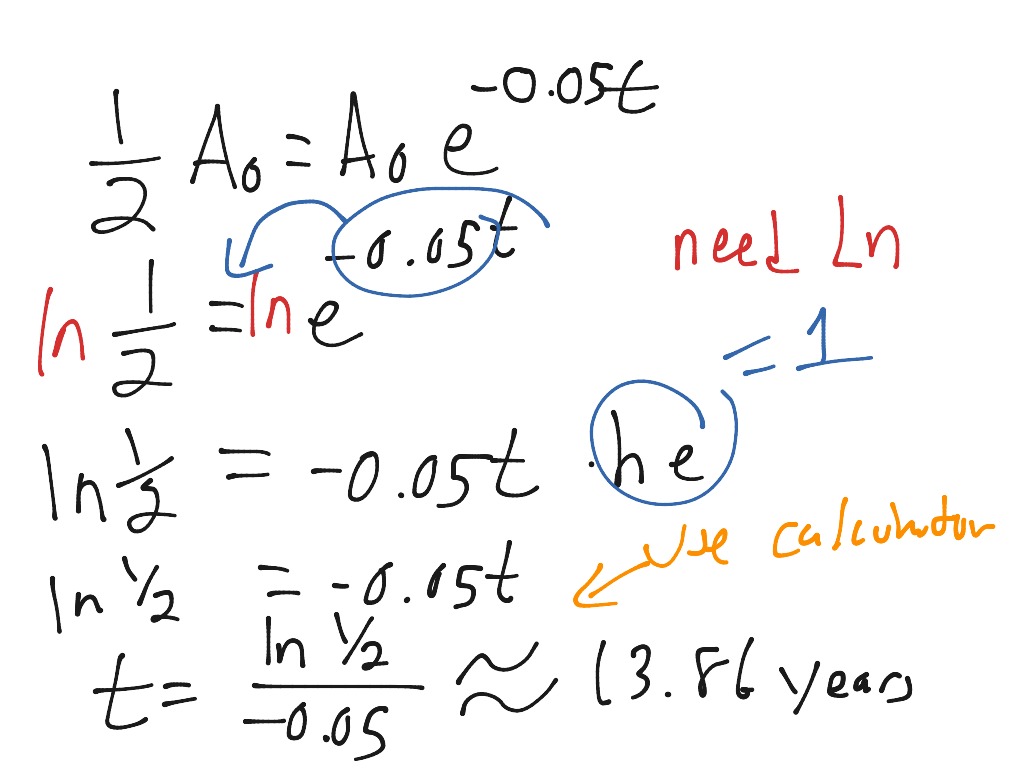 1/2 A₀ = A₀ e^(-0.05t)
need Ln
ln 1/2 = ln e^(-0.05t)
= 1
ln 1/2 = -0.05t · ln e
use calculator
ln 1/2 = -0.05t
t = (ln 1/2)/(-0.05) ≈ 13.86 years